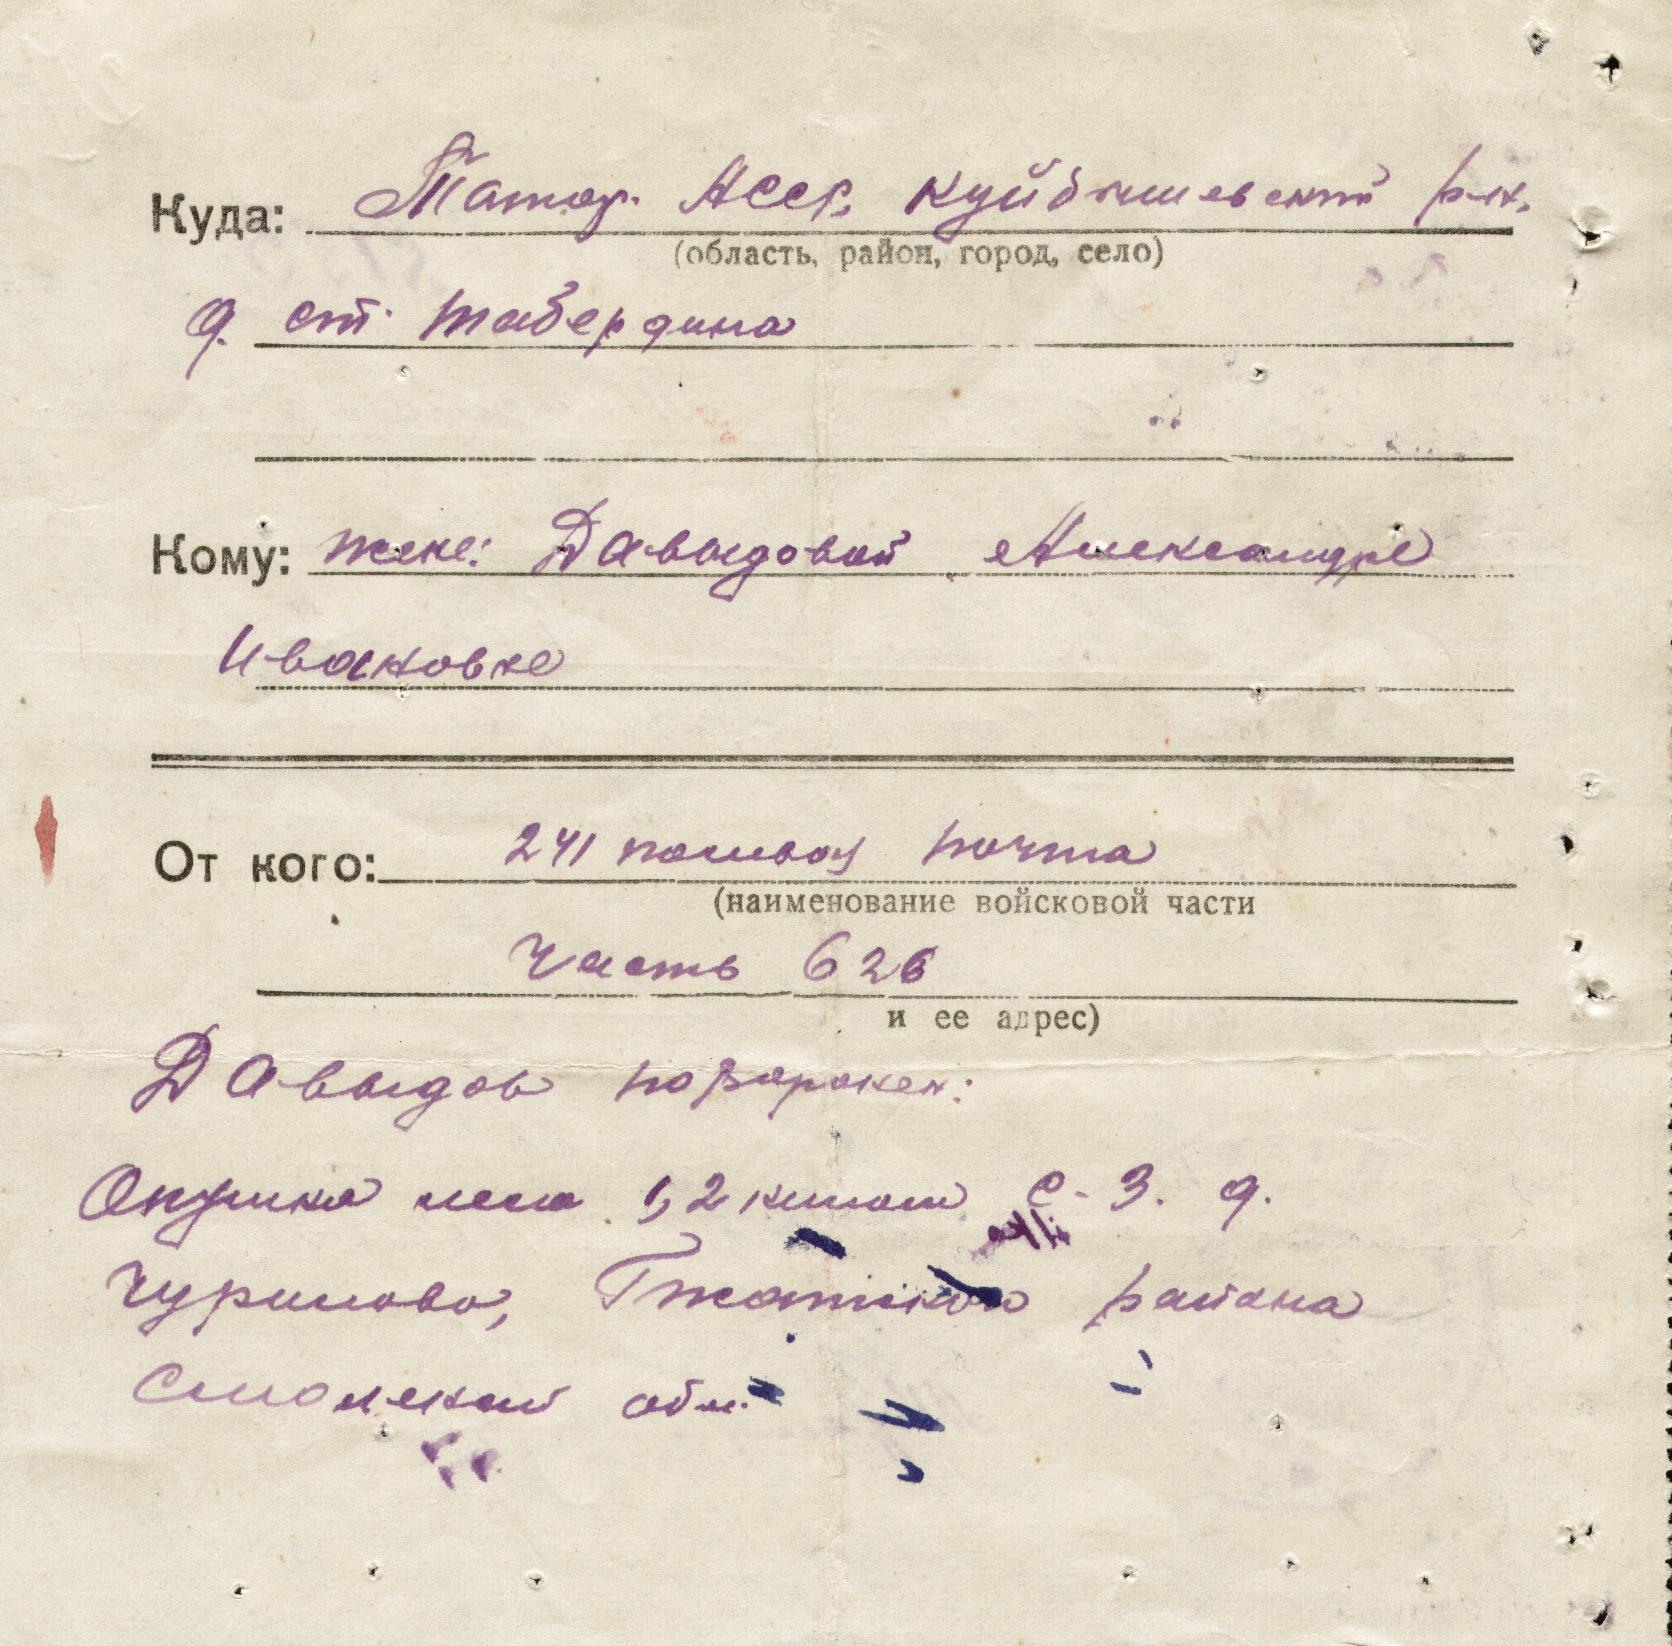 Куда: Татар. АССР, Куйбышевский р-н.
(область, район, город, село)
д. ст. Табердина
Кому: жене: Давыдовой Александре
Ивановне
От кого: 241 полевая почта
(наименование войсковой части
часть 626
и ее адрес)
Давыдов похоронен:
Опушка леса 1,2 килом С-З. д.
Чурилово, Гжатского района
Смоленской обл.